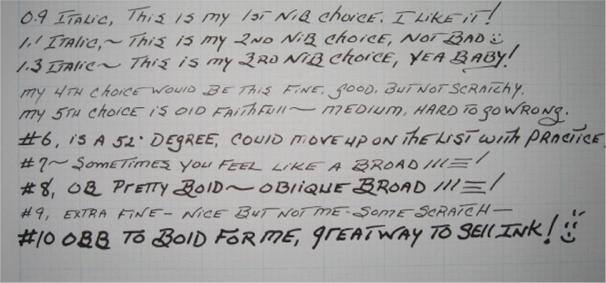 0.9 Italic, This is my 1st Nib choice. I like it!
1.1 Italic,~ This is my 2nd Nib choice, Not Bad
1.3 Italic~ This is my 3rd Nib choice, Yea Baby!
my 4th choice would be this fine. good. But not scratchy.
my 5th choice is old faithfull~ medium, hard to go wrong.
#6, is a 52° Degree, could move up on the list with practice
#7~ Sometimes you feel like a Broad !!!
#8, OB Pretty Bold~ OBlique Broad !!!
#9, Extra fine- nice but not me-some scratch-
#10 OBB to Bold for me, great way to sell ink!